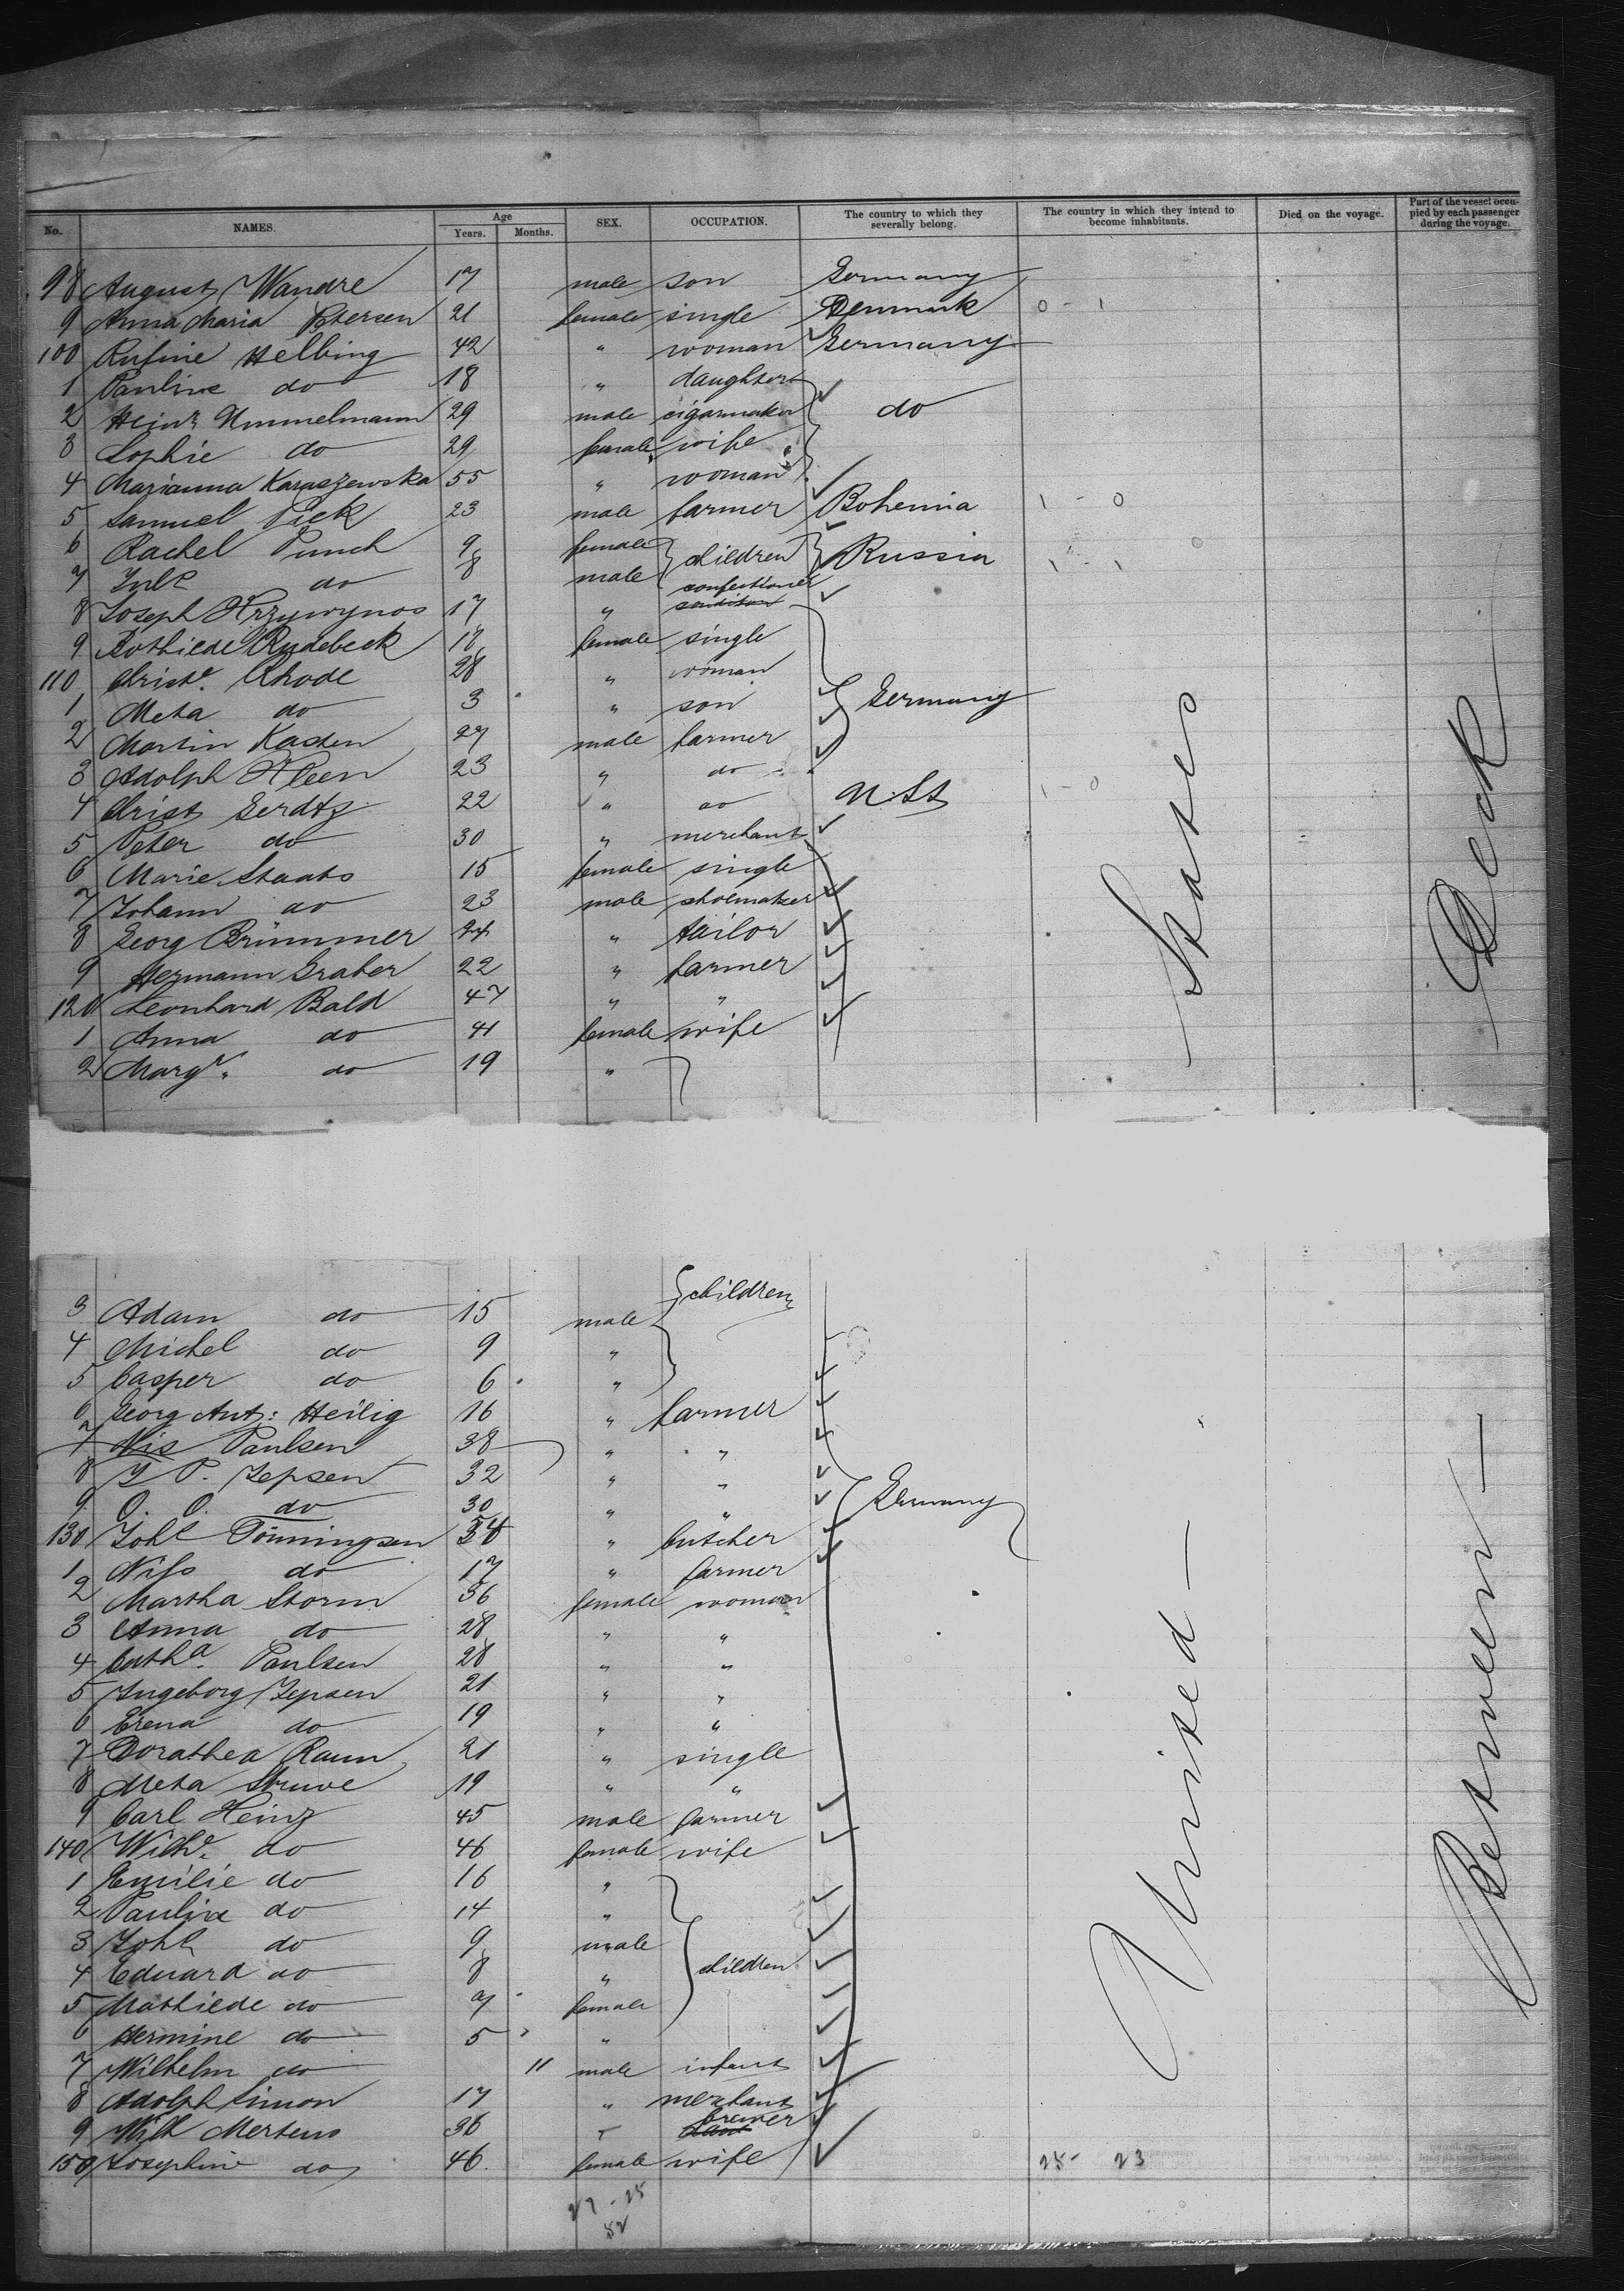 No. NAMES. Age Years. Months. SEX. OCCUPATION. The country to which they severally belong. The country in which they intend to become inhabitants. Died on the voyage. Part of the vessel occupied by each passenger during the voyage.
98 August Wandre 17 male son Germany
9 Anna Maria Petersen 21 female single Denmark 0 - 1
100 Rufine Helbing 42 " woman Germany
1 Pauline do 18 " daughter
2 Heinr Ummelmann 29 male cigarmaker do
3 Sophie do 29 female wife
4 Marianna Karaszewska 55 " woman
5 Samuel Pick 23 male farmer Bohemia 1 - 0
6 Rachel Punch 9 female children Russia 0
7 do 8 male 1 - 1
confectioner
8 Joseph Krzywynos 17 "
9 Rudebeck female single
110 Christe. Rhode 28 " woman
1 Meta do 3 " son Germany
2 Martin Kasten 27 male farmer
3 Adolph Kleen 23 " do
4 Christ Gerdtz 22 " do U.St 1 - 0
5 Peter do 30 " merchant
6 Marie Staats 15 female single
7 Johann do 23 male shoemaker
8 Georg Brümmer 24 " tailor
9 Hermann Graber 22 " farmer
120 Leonhard Bald 47 " "
1 Anna do 41 female wife
2 Margr. do 19 "
children
3 Adam do 15 male
4 Michel do 9 "
5 Casper do 6 "
6 Georg Ant: Heilig 16 " farmer
7 Nis Paulsen 38 " "
8 J P. Jepsen 32 " "
9 O. O. do 30 " " Germany
130 Joh Tönningsen " butcher
1 Nifs do 17 " farmer
2 Martha Storm 56 female woman
3 Anna do 28 " "
4 Catha. Paulsen 28 " "
5 Ingeborg Jepsen 21 " "
6 Erena do 19 " "
7 Dorathea Raun 21 " single
8 Meta Struve 19 " "
9 Carl Heinz 45 male farmer
140 Wilhe. do 46 female wife
1 Emilie do 16 "
2 Pauline do 14 "
3 Joh do 9 male
4 Eduard do 8 " children
5 Mathilde do 7 female
6 Hermine do 5 "
7 Wilhelm do 11 male infant
8 Adolph Simon 17 " merchant
9 Wilh Mertens 36 " brewer
150 Josephine do 46 female wife 25 - 23
27 - 25
52
United States
Between Deck